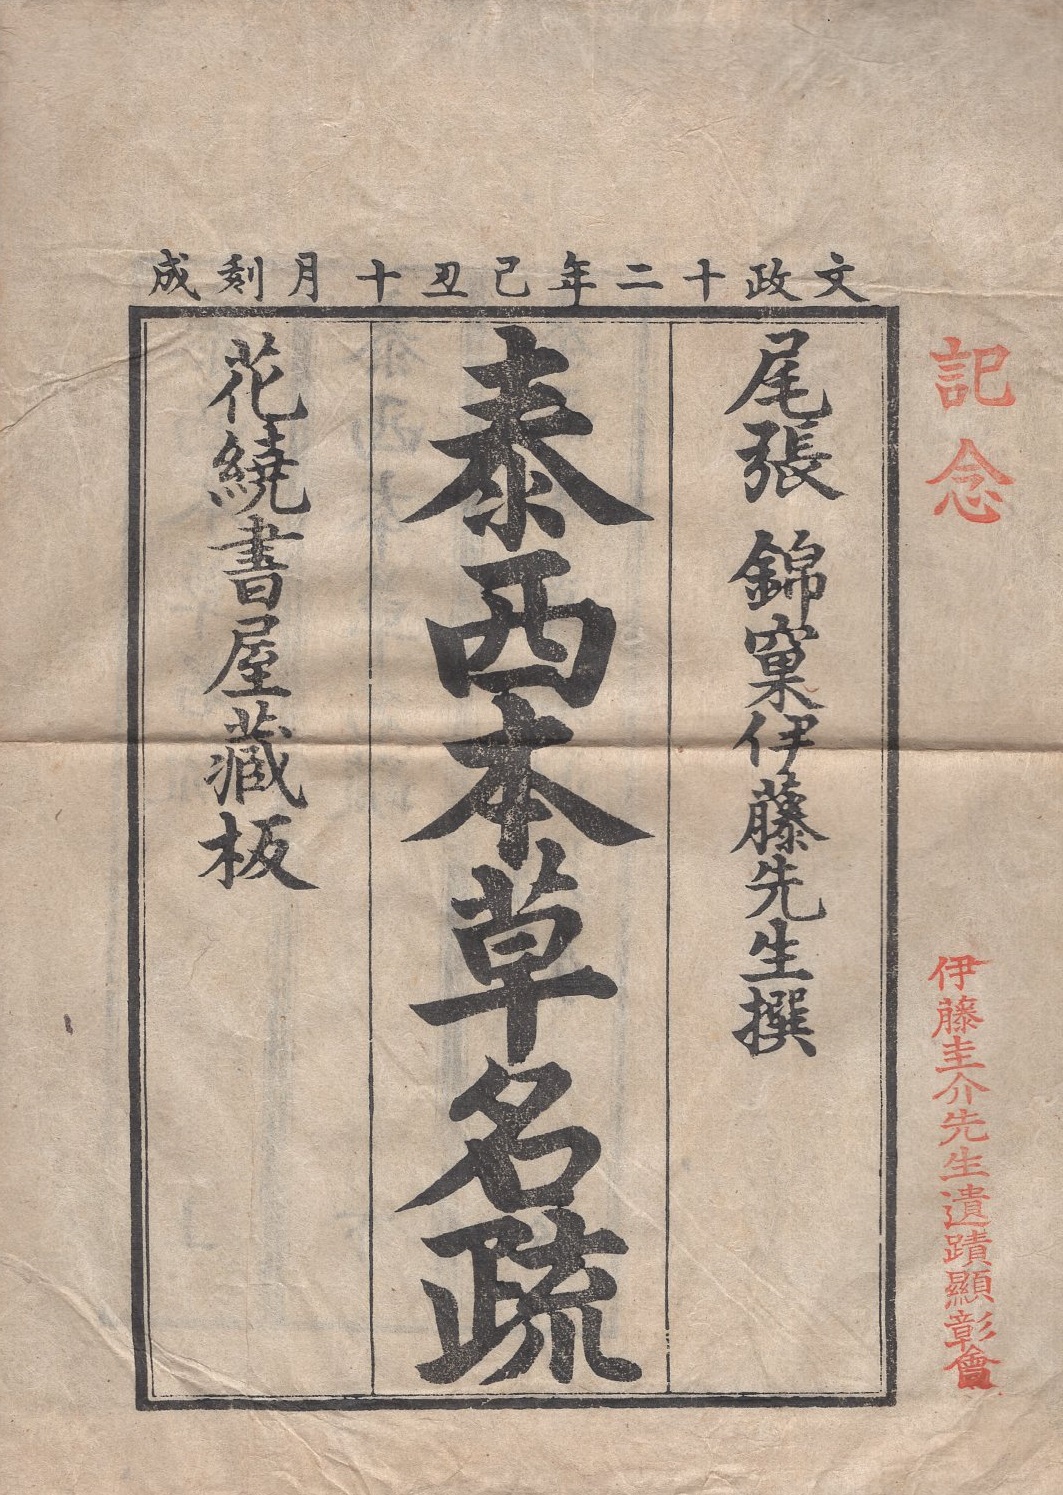 文政十二年己丑十月刻成
尾張 錦窠伊藤先生撰
泰西本草名疏
花繞書屋藏板
記念
伊藤圭介先生遺蹟顯彰會